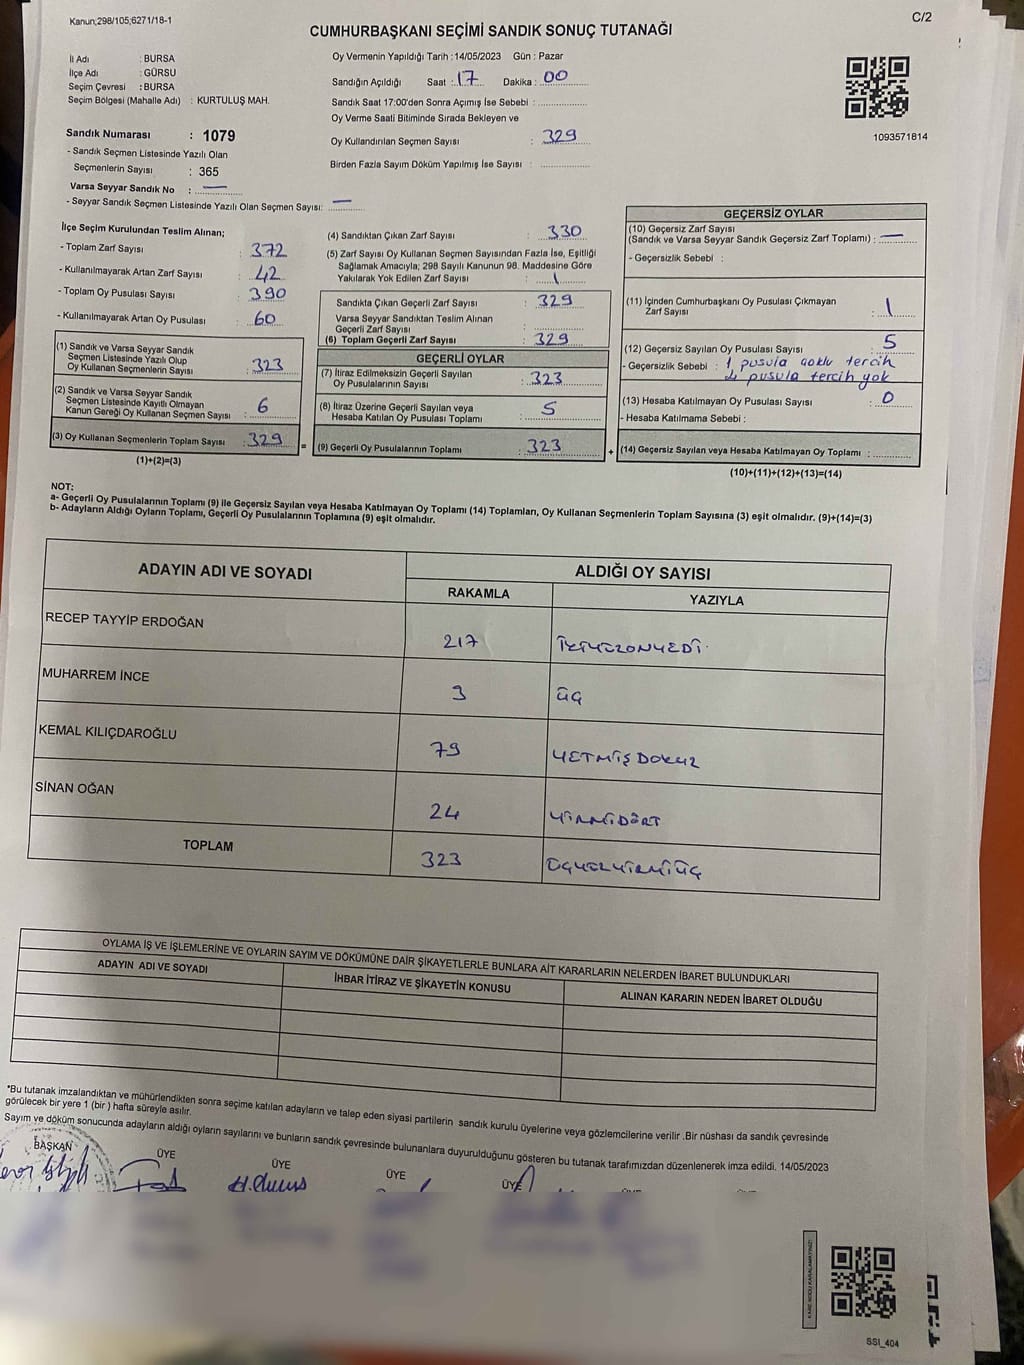 Kanun;298/105;6271/18-1
C/2
CUMHURBAŞKANI SEÇİMİ SANDIK SONUÇ TUTANAĞI
İl Adı : BURSA
İlçe Adı : GÜRSU
Seçim Çevresi : BURSA
Seçim Bölgesi (Mahalle Adı) : KURTULUŞ MAH.
Oy Vermenin Yapıldığı Tarih : 14/05/2023 Gün : Pazar
Sandığın Açıldığı Saat : 17 Dakika : 00
Sandık Saat 17:00'den Sonra Açımış İse Sebebi :
Oy Verme Saati Bitiminde Sırada Bekleyen ve
Oy Kullandırılan Seçmen Sayısı : 329
Birden Fazla Sayım Döküm Yapılmış İse Sayısı :
1093571814
Sandık Numarası : 1079
- Sandık Seçmen Listesinde Yazılı Olan
Seçmenlerin Sayısı : 365
Varsa Seyyar Sandık No : —
- Seyyar Sandık Seçmen Listesinde Yazılı Olan Seçmen Sayısı: —
İlçe Seçim Kurulundan Teslim Alınan;
- Toplam Zarf Sayısı : 372
- Kullanılmayarak Artan Zarf Sayısı : 42
- Toplam Oy Pusulası Sayısı : 390
- Kullanılmayarak Artan Oy Pusulası : 60
(1) Sandık ve Varsa Seyyar Sandık
Seçmen Listesinde Yazılı Olup
Oy Kullanan Seçmenlerin Sayısı : 323
(2) Sandık ve Varsa Seyyar Sandık
Seçmen Listesinde Kayıtlı Olmayan
Kanun Gereği Oy Kullanan Seçmen Sayısı : 6
(3) Oy Kullanan Seçmenlerin Toplam Sayısı : 329 =
(1)+(2)=(3)
(4) Sandıktan Çıkan Zarf Sayısı : 330
(5) Zarf Sayısı Oy Kullanan Seçmen Sayısından Fazla İse, Eşitliği
Sağlamak Amacıyla; 298 Sayılı Kanunun 98. Maddesine Göre
Yakılarak Yok Edilen Zarf Sayısı : 1
Sandıkta Çıkan Geçerli Zarf Sayısı : 329
Varsa Seyyar Sandıktan Teslim Alınan
Geçerli Zarf Sayısı :
(6) Toplam Geçerli Zarf Sayısı : 329
GEÇERLİ OYLAR
(7) İtiraz Edilmeksizin Geçerli Sayılan
Oy Pusulalarının Sayısı : 323
(8) İtiraz Üzerine Geçerli Sayılan veya
Hesaba Katılan Oy Pusulası Toplamı : 5
(9) Geçerli Oy Pusulalarının Toplamı : 323 +
GEÇERSİZ OYLAR
(10) Geçersiz Zarf Sayısı
(Sandık ve Varsa Seyyar Sandık Geçersiz Zarf Toplamı) : —
- Geçersizlik Sebebi :
(11) İçinden Cumhurbaşkanı Oy Pusulası Çıkmayan
Zarf Sayısı : 1
(12) Geçersiz Sayılan Oy Pusulası Sayısı : 5
- Geçersizlik Sebebi : 1 pusula çoklu tercih
4 pusula tercih yok
(13) Hesaba Katılmayan Oy Pusulası Sayısı : 0
- Hesaba Katılmama Sebebi :
(14) Geçersiz Sayılan veya Hesaba Katılmayan Oy Toplamı :
(10)+(11)+(12)+(13)=(14)
NOT:
a- Geçerli Oy Pusulalarının Toplamı (9) ile Geçersiz Sayılan veya Hesaba Katılmayan Oy Toplamı (14) Toplamları, Oy Kullanan Seçmenlerin Toplam Sayısına (3) eşit olmalıdır. (9)+(14)=(3)
b- Adayların Aldığı Oyların Toplamı, Geçerli Oy Pusulalarının Toplamına (9) eşit olmalıdır.
ADAYIN ADI VE SOYADI
ALDIĞI OY SAYISI
RAKAMLA YAZIYLA
RECEP TAYYİP ERDOĞAN 217 İKİYÜZONYEDİ
MUHARREM İNCE 3 ÜÇ
KEMAL KILIÇDAROĞLU 79 YETMİŞ DOKUZ
SİNAN OĞAN 24 YİRMİDÖRT
TOPLAM 323 ÜÇYÜZYİRMİÜÇ
OYLAMA İŞ VE İŞLEMLERİNE VE OYLARIN SAYIM VE DÖKÜMÜNE DAİR ŞİKAYETLERLE BUNLARA AİT KARARLARIN NELERDEN İBARET BULUNDUKLARI
ADAYIN ADI VE SOYADI
İHBAR İTİRAZ VE ŞİKAYETİN KONUSU
ALINAN KARARIN NEDEN İBARET OLDUĞU
*Bu tutanak imzalandıktan ve mühürlendikten sonra seçime katılan adayların ve talep eden siyasi partilerin sandık kurulu üyelerine veya gözlemcilerine verilir .Bir nüshası da sandık çevresinde
görülecek bir yere 1 (bir ) hafta süreyle asılır.
Sayım ve döküm sonucunda adayların aldığı oyların sayılarını ve bunların sandık çevresinde bulunanlara duyurulduğunu gösteren bu tutanak tarafımızdan düzenlenerek imza edildi. 14/05/2023
BAŞKAN ÜYE ÜYE ÜYE ÜYE
KARE KODU KARALAMAYINIZ!
SSI_404